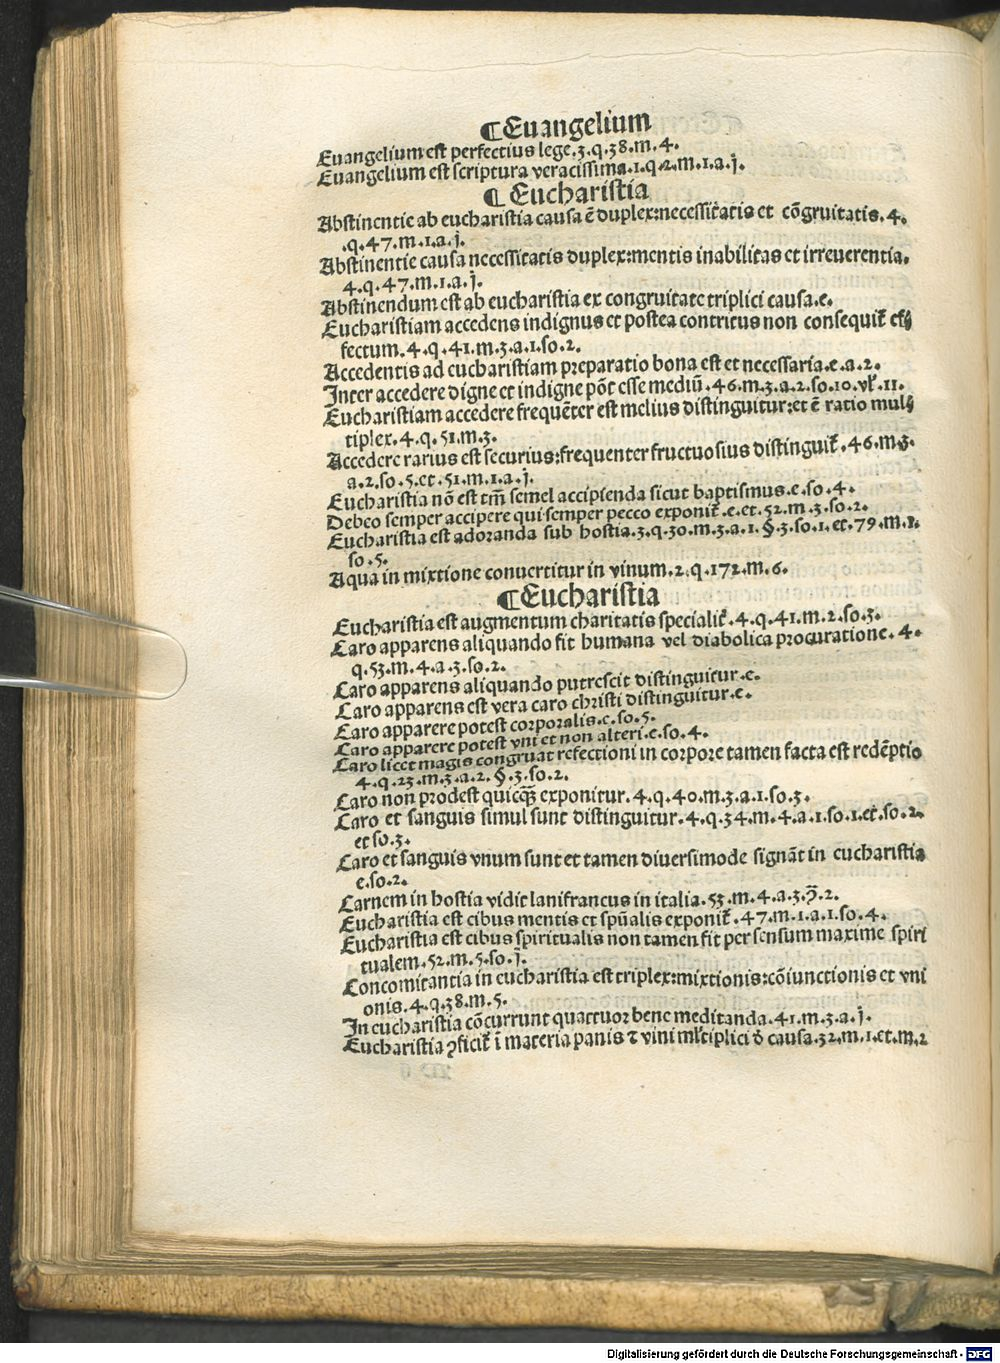 ¶Euangelium
Euangelium est perfectius lege.3.q.38.m.4.
Euangelium est scriptura veracissima.1.q.2.m.1.a.j.
¶Eucharistia
Abstinentie ab eucharistia causa ē duplex:necessitatis et cōgruitatis.4.
.q.47.m.1.a.j.
Abstinentie causa necessitatis duplex:mentis inabilitas et irreuerentia.
4.q.47.m.1.a.j.
Abstinendum est ab eucharistia ex congruitate triplici causa.e.
Eucharistiam accedens indignus et postea contritus non consequit᷑ ef⸗
fectum.4.q.41.m.3.a.1.so.2.
Accedentis ad eucharistiam preparatio bona est et necessaria.e.a.2.
Inter accedere digne et indigne pōt esse mediū.46.m.3.a.2.so.10.vl᷑.11.
Eucharistiam accedere frequēter est melius distinguitur:et ē ratio mul⸗
tiplex.4.q.51.m.3.
Accedere rarius est securius:frequenter fructuosius distinguit᷑.46.m.3.
a.2.so.5.et.51.m.1.a.j.
Eucharistia nō est tm̄ semel accipienda sicut baptismus.e.so.4.
Debeo semper accipere qui semper pecco exponit᷑.e.et.52.m.3.so.2.
Eucharistia est adoranda sub hostia.3.q.30.m.3.a.1.§.3.so.1.et.79.m.1.
so.5.
Aqua in mixtione conuertitur in vinum.2.q.172.m.6.
¶Eucharistia
Eucharistia est augmentum charitatis specialit᷑.4.q.41.m.2.so.3.
Caro apparens aliquando fit humana vel diabolica procuratione.4.
q.53.m.4.a.3.so.2.
Caro apparens aliquando putrescit distinguitur.e.
Caro apparens est vera caro christi distinguitur.e.
Caro apparere potest corporalis.e.so.5.
Caro apparere potest vni et non alteri.e.so.4.
Caro licet magis congruat refectioni in corpore tamen facta est redēptio
4.q.23.m.3.a.2.§.3.so.2.
Caro non prodest quicq̄ exponitur.4.q.40.m.3.a.1.so.3.
Caro et sanguis simul sunt distinguitur.4.q.34.m.4.a.1.so.1.et.so.2.
et so.3.
Caro et sanguis vnum sunt et tamen diuersimode signāt in eucharistia
e.so.2.
Carnem in hostia vidit lanifrancus in italia.53.m.4.a.3.ꝯ̄.2.
Eucharistia est cibus mentis et spūalis exponit᷑.47.m.1.a.1.so.4.
Eucharistia est cibus spiritualis non tamen fit per sensum maxime spiri
tualem.52.m.5.so.j.
Concomitantia in eucharistia est triplex:mixtionis:cōiunctionis et vni
onis.4.q.38.m.5.
In eucharistia cōcurrunt quattuor bene meditanda.41.m.3.a.j.
Eucharistia ꝯficit᷑ ī materia panis ⁊ vini ml᷑tiplici d̄ causa.32.m.1.et.m.2
Digitalisierung gefördert durch die Deutsche Forschungsgemeinschaft - DFG